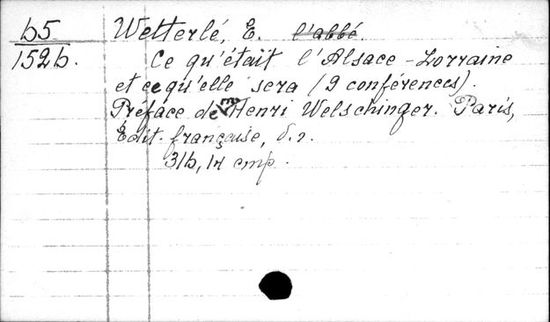 b5
152b.
Wetterlé, E. l'abbé.
Ce qu'était l'Alsace-Lorraine
et ce qu'elle sera (9 conférences).
Préface de Henri Welschinger. Paris,
Edit. française,
31b, 14 cmp.